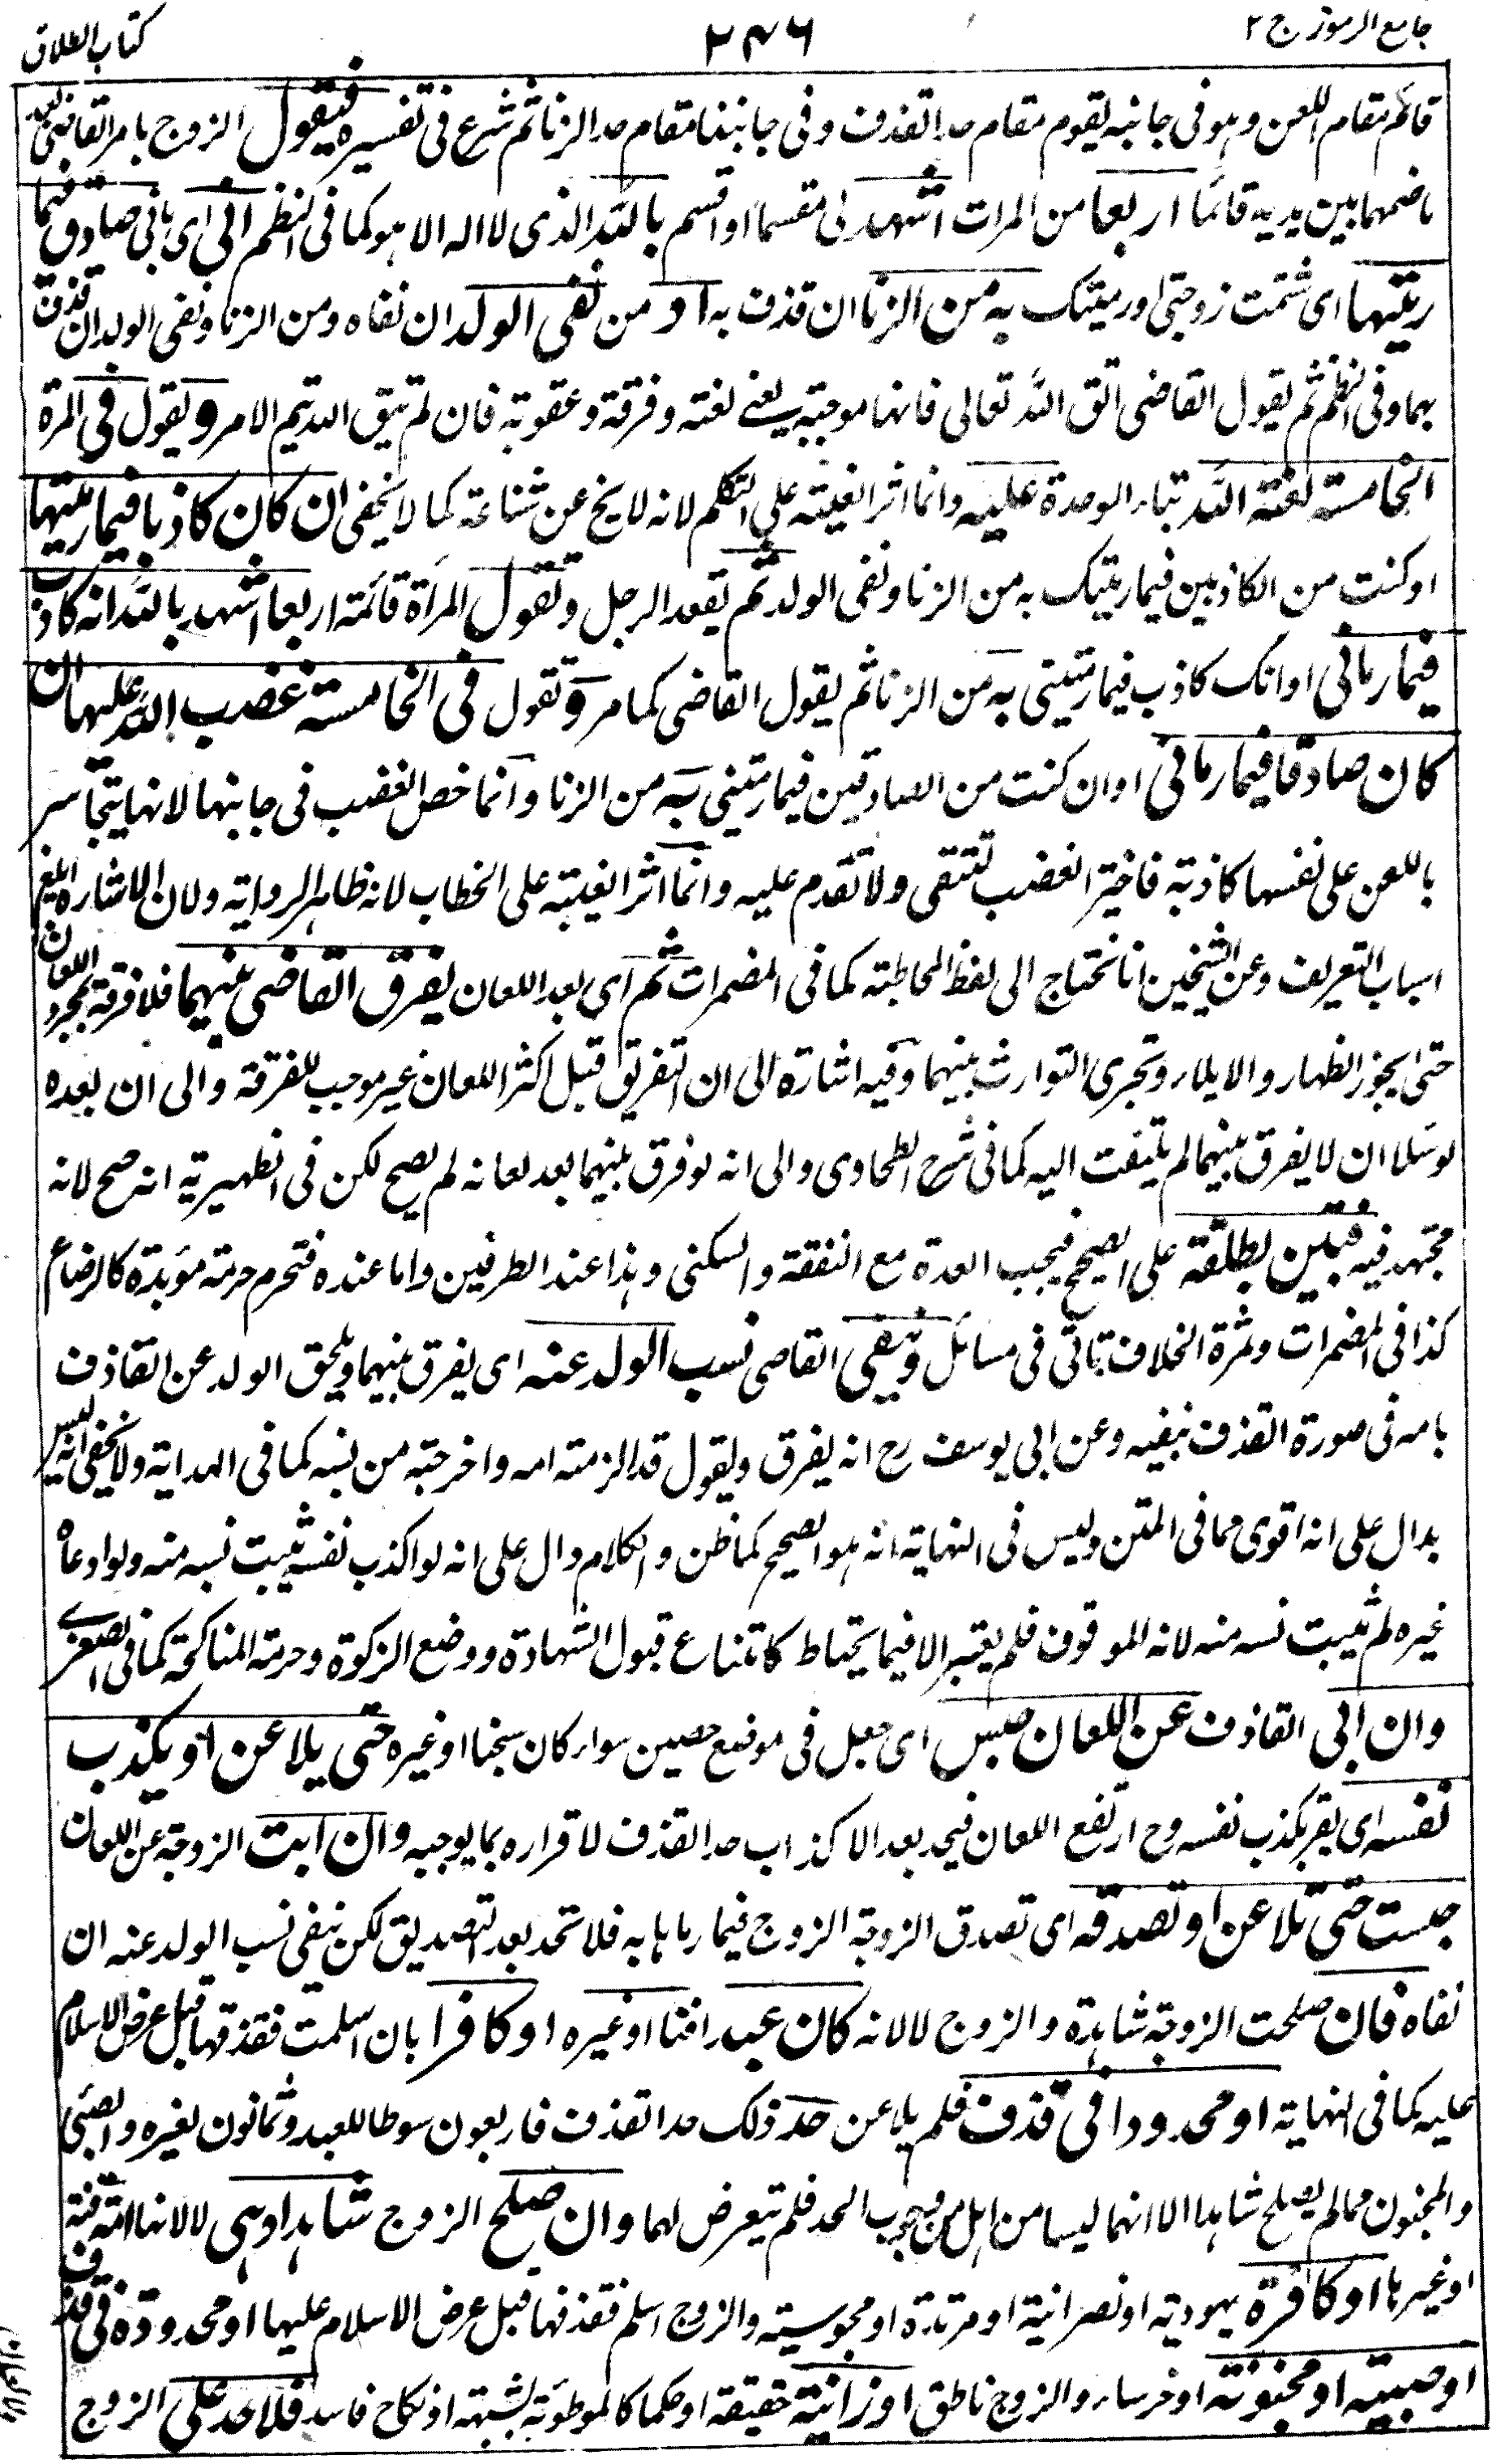 جامع الرموز ج ٢
٢٤٦
كتاب الطلاق
قائم مقام اللعن وهو في جانبه يقوم مقام حد القذف وفي جانبنا مقام حد الزنا ثم شرع في تفسيره فيقول الزوج بامر القاضي بعد
ما ضمهما بين يديه قائما اربعا من المرات اشهد لي مقسما او اقسم بالله الذي لا اله الا هو كما في النظم اني اي باني صادق فيما
رميتها اي شتمت زوجتي او رميتك به من الزنا ان قذف به او من نفي الولد ان نفاه ومن الزنا ونفي الولد ان قذف
بهما وفي النظم ثم يقول القاضي اتق الله تعالى فانها موجبة يعني لعنة وفرقة وعقوبة فان لم يتق الله يتم الامر ويقول في المرة
الخامسة لعنة الله بتاء الوحدة عليه وانما اثر الغيبة على التكلم لانه لا يخ عن شناعة كما لا يخفى ان كان كاذبا فيما رميتها
او كنت من الكاذبين فيما رميتك به من الزنا ونفي الولد ثم يقعد الرجل وتقول المرأة قائمة اربعا اشهد بالله انه كاذب
فيما رماني او انك كاذب فيما رميتني به من الزنا ثم يقول القاضي كما مر وتقول في الخامسة غضب الله عليها ان
كان صادقا فيما رماني او ان كنت من الصادقين فيما رميتني به من الزنا وانما خص الغضب في جانبها لانها يتجاسر
باللعن على نفسها كاذبة فاختير الغضب لتتقي ولا تقدم عليه وانما اثر الغيبة على الخطاب لانه ظاهر الرواية ولان الاشارة ابلغ
اسباب التعريف وعن الشيخين انا نحتاج الى لفظ المخاطبة كما في المضمرات ثم اي بعد اللعان يفرق القاضي بينهما فلا فرقة بمجرد اللعان
حتى يجوز الظهار والايلاء وتجري التوارث بينهما وفيه اشارة الى ان التفريق قبل اكثر اللعان غير موجب للفرقة والى ان بعده
لو سلا ان لا يفرق بينهما لم يلتفت اليه كما في شرح الطحاوي والى انه لو فرق بينهما بعد لعانه لم يصح لكن في الظهيرية انه صح لانه
مجتهد فيه فتبين بطلقة على الصحيح فيجب العدة مع النفقة والسكنى وهذا عند الطرفين واما عنده فتحرم حرمة مؤبدة كالرضاع
كذا في المضمرات وثمرة الخلاف تاتي في مسائل وينفي القاضي نسب الولد عنه اي يفرق بينهما ويلحق الولد عن القاذف
بامه في صورة القذف بنفيه وعن ابي يوسف رح انه يفرق ويقول قد الزمته امه واخرجته من نسبه كما في الهداية ولا يخفى انه ليس
بدال على انه اقوى مما في المتن وليس في النهاية انه هو الصحيح كما ظن والكلام دال على انه لو اكذب نفسه يثبت نسبه منه ولو ادعاه
غيره لم يثبت نسبه منه لانه الموقوف فلم يعتبر الا فيما يحتاط كامتناع قبول الشهادة ووضع الزكوة وحرمة المناكحة كما في الصغرى
وان ابى القاذف عن اللعان حبس اي جعل في موضع حصين سواء كان سجنا او غيره حتى يلاعن او يكذب
نفسه اي يقر بكذب نفسه وح ارتفع اللعان فيحد بعد الاكذاب حد القذف لاقراره بما يوجبه وان ابت الزوجة عن اللعان
حبست حتى تلاعن او تصدقه اي تصدق الزوجة الزوج فيما رماها به فلا تحد بعد التصديق لكن ينفي نسب الولد عنه ان
نفاه فان صلحت الزوجة شاهدة والزوج لا لانه كان عبدا قنا او غيره او كافرا بان اسلمت فقذفها قبل عرض الاسلام
عليه كما في النهاية او محدودا في قذف فلم يلاعن حد ذلك حد القذف فاربعون سوطا للعبد وثمانون لغيره والصبي
والمجنون مما لم يصلح شاهدا الا انهما ليسا من اهل وجوب الحد فلم يتعرض لهما وان صلح الزوج شاهدا وهي لا لانها امة قنة
او غيرها او كافرة يهودية او نصرانية او مرتدة او مجوسية والزوج اسلم فقذفها قبل عرض الاسلام عليها او محدودة في قذف
او صبية او مجنونة او خرساء والزوج ناطق او زانية حقيقة او حكما كالموطوئة بشبهة او نكاح فاسد فلا حد على الزوج